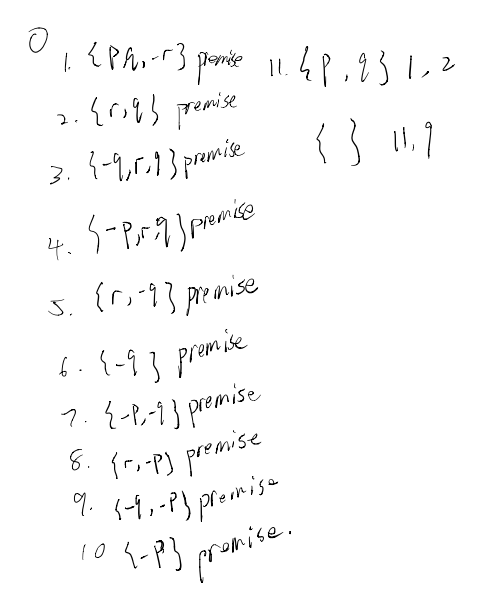 0
1. {p q, -r} premise
2. {r, q} premise
3. {-q, r, q} premise
4. {-p, r, q} premise
5. {r, -q} premise
6. {-q} premise
7. {-p, -q} premise
8. {r, -p} premise
9. {-q, -p} premise
10 {-p} premise.
11. {p, q} 1, 2
{ } 11, 9